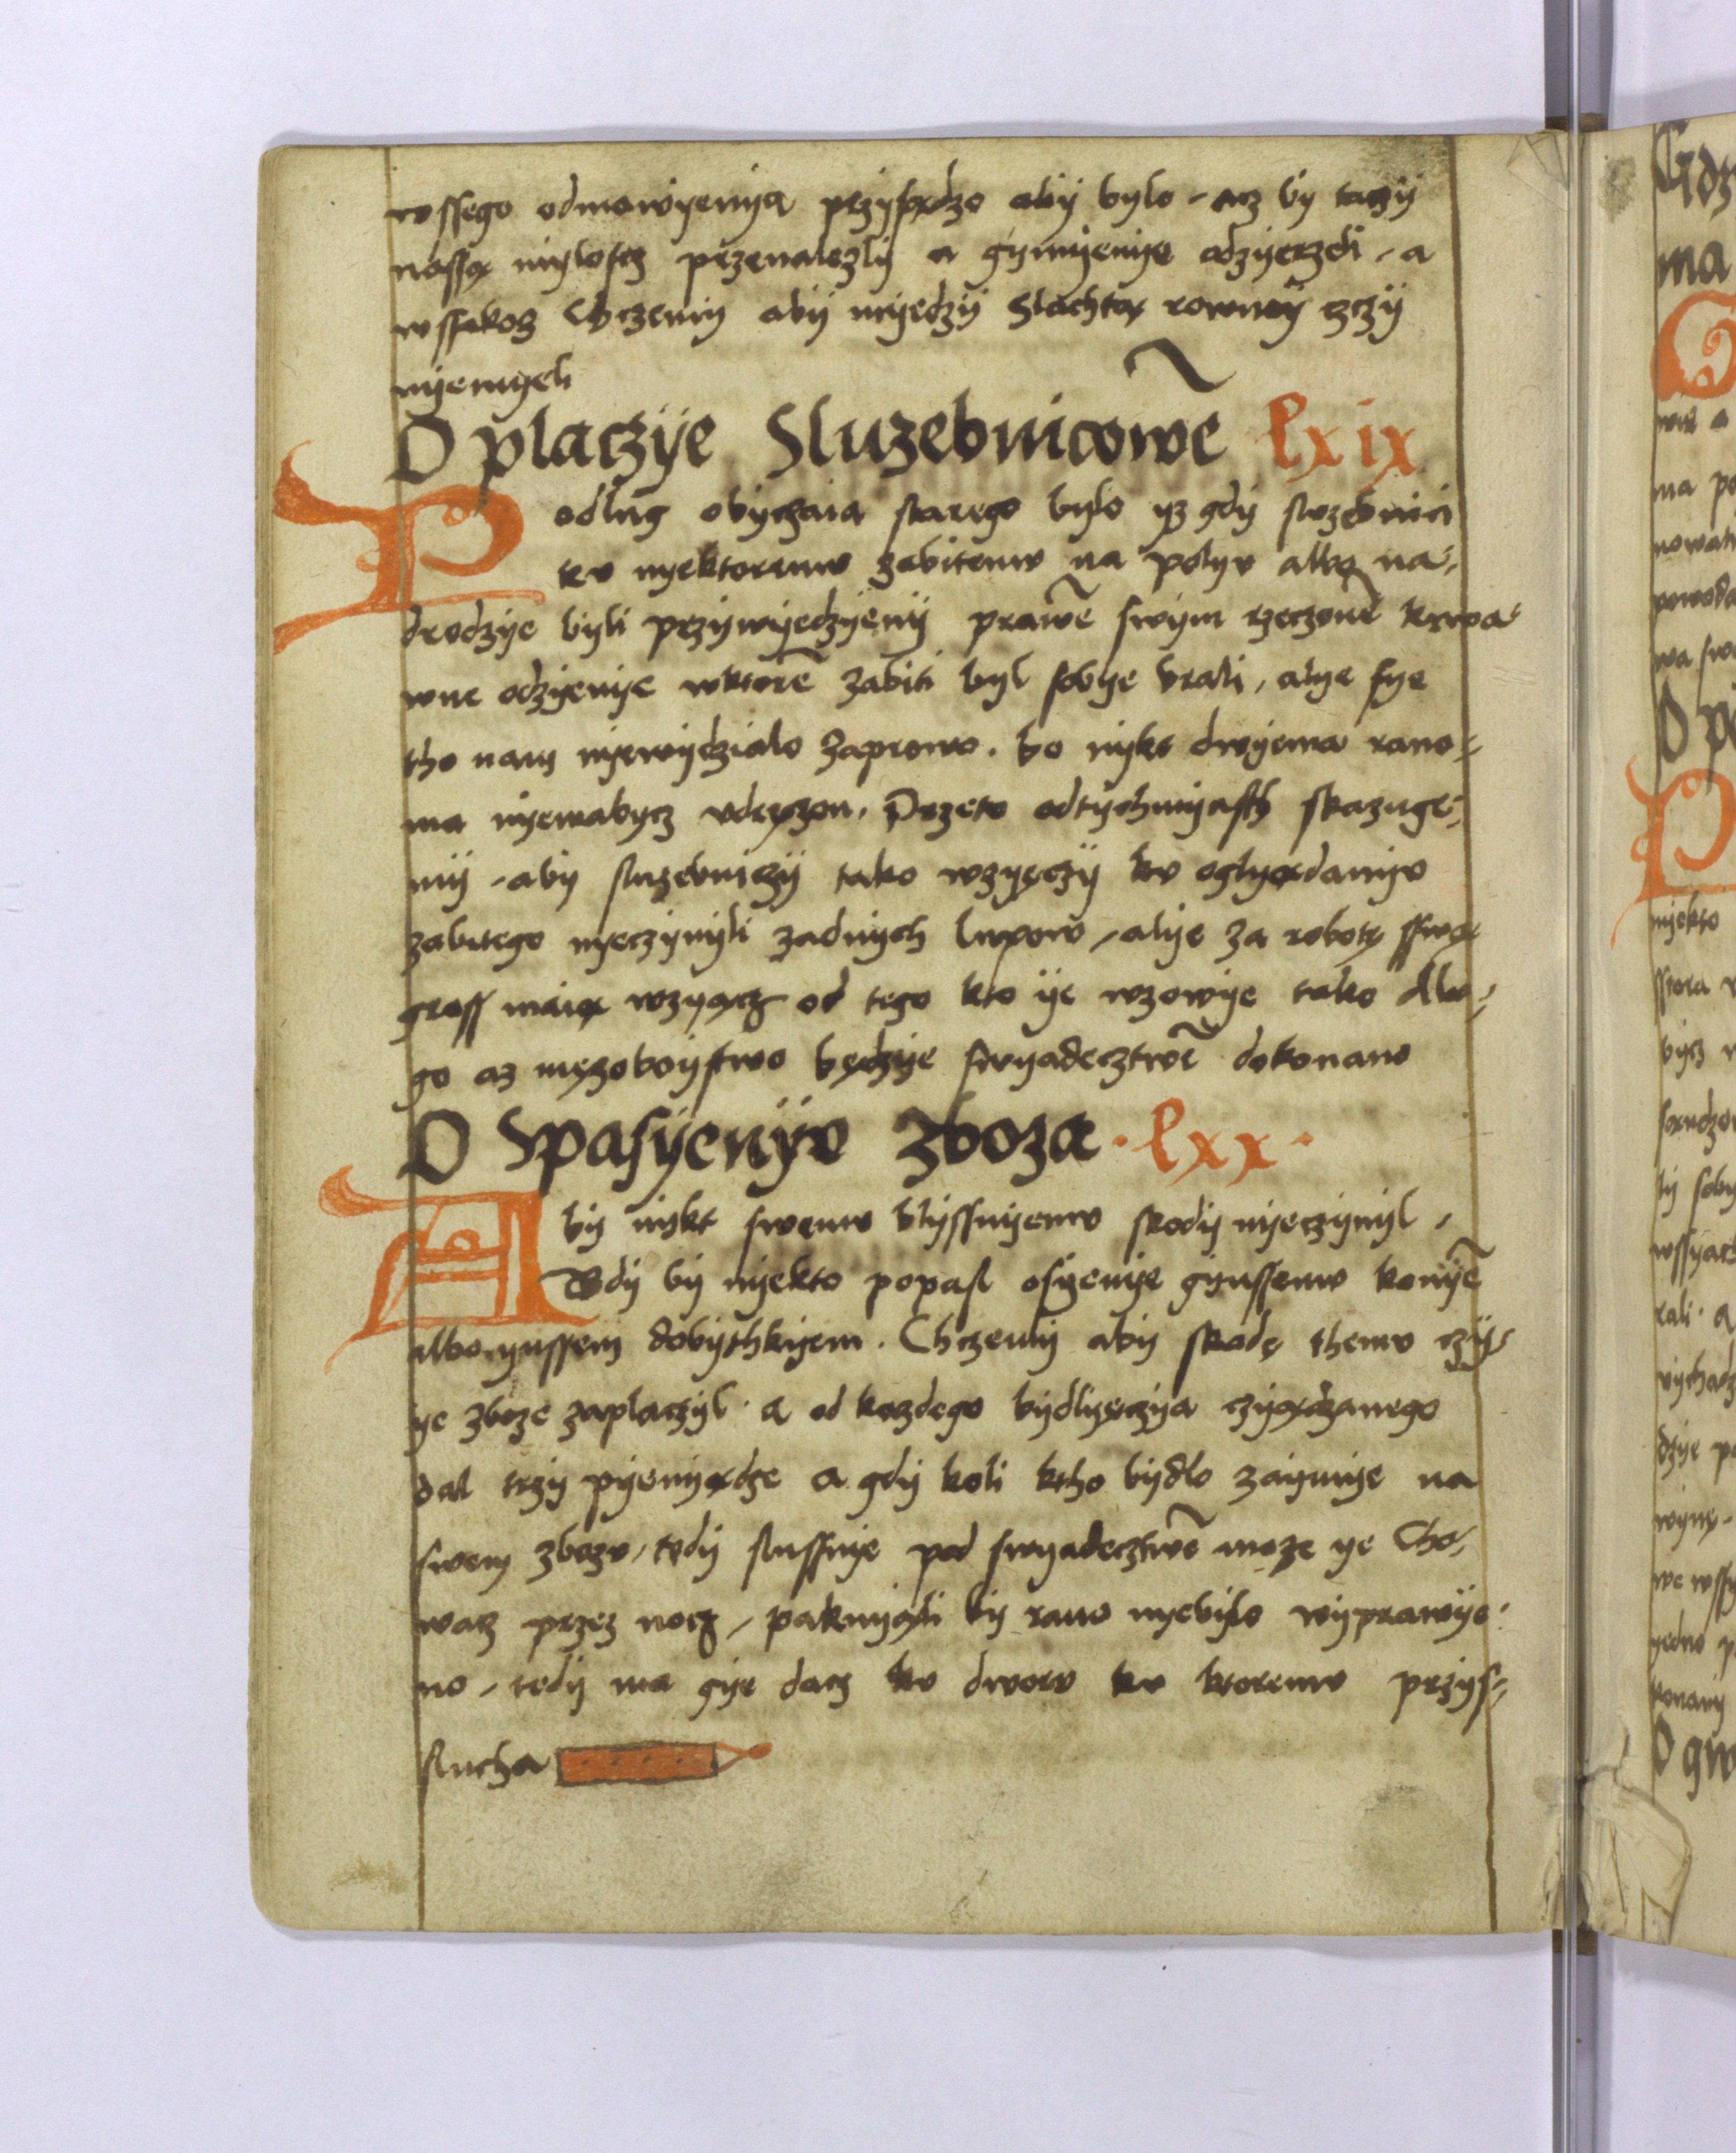 wssego odmowyenya przysądzo abÿ bylo – acz bÿ taczÿ
nassą myloscz przenalezlÿ a gymyenye odzyerzeli – a
wssakoz Chczemÿ abÿ myedzÿ Slachtą rownoÿ rzczÿ
myenyeli
O placzÿe Sluzebnicowē lxix
Podlug obyczaia starego bylo yz gdÿ sluzebnici
kv nyektoremv zabitemv na polyv albo na-
drodzye byli przywyedzyenÿ prawē swym rzeczonē krwa-
wne odzyenye wktorē zabiti byl sobye brali, alye sye
tho nam nyewydzialo zaprawo. bo nykt dwyema rano-
ma nyemabycz vdręczon. Przeto odtychmyasth skazuge-
mÿ – abÿ sluzebniczÿ tako wzyęczÿ kv oglyądanyv
zabitego nyeczynyli zadnych lupow – alye za robotę sswą
gross maią wzyącz od tego kto ÿe wzowye tako dlu-
go az męzoboystwo będzye swyadecztwē dokonano
O Spasÿenyv zboza · lxx ·
Abÿ nykt swemv blyssnyemv skodÿ nyeczynyl –
Gdÿ bÿ nyekto popasl osyenye gynssemv konyē
albo ynssem dobythkyem. Chczemÿ abÿ skodę themv czÿ-
ye zboze zaplaczyl · a od kazdego bydlyęczya czyądzanego
dal trzÿ pyenyądze a gdÿ koli ktho bydlo zaymye na
swem zbozv, tedÿ slussnye pod swyadecztwē moze ye Cho-
wacz przez nocz – paknyąli bÿ rano nyebilo wyprawye-
no – tedÿ ma gye dacz kv dworv kv ktoremv przys-
slucha